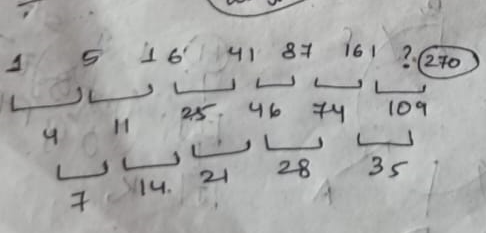 1 5 16 41 87 161 ? 270
4 11 25 46 74 109
7 14 21 28 35